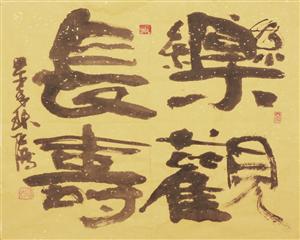 樂觀
長壽